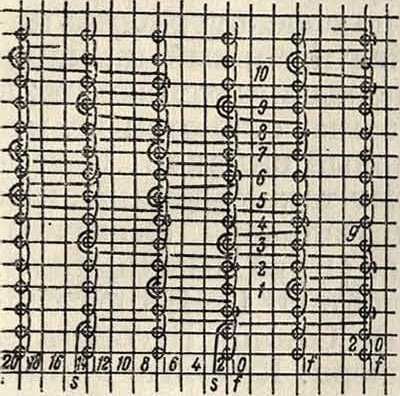 10
9
8
7
6
5
4
3 g
2
1
2 0
20 18 16 14 12 10 8 6 4 2 0 f f
s s f